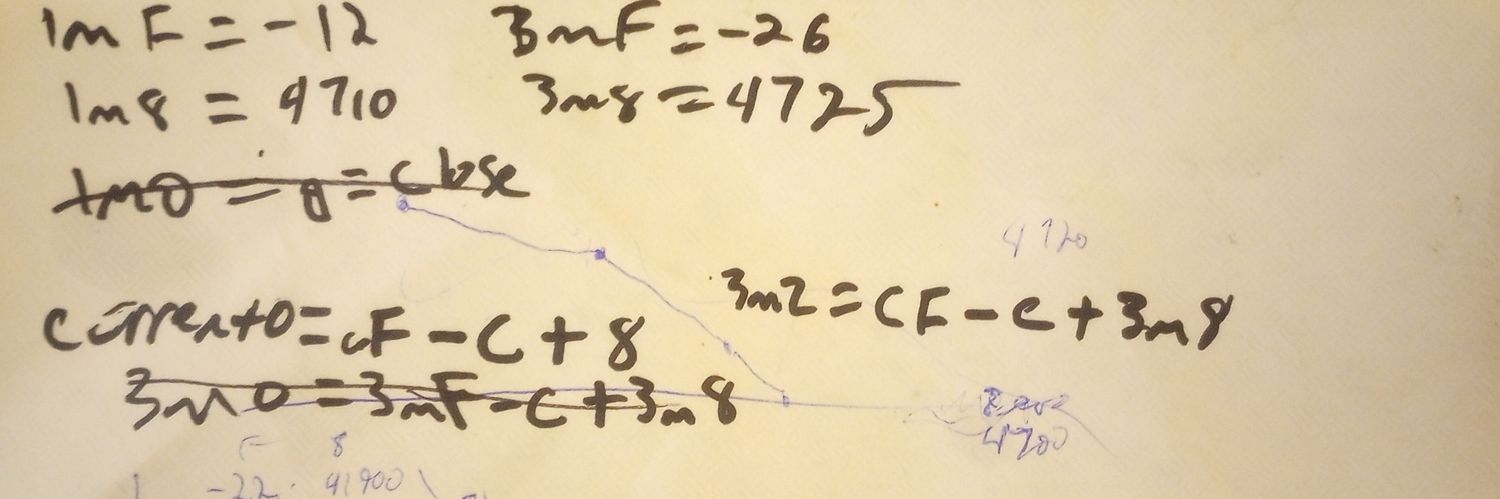 1m F = -12 3mF = -26
1m8 = 4710 3m8 = 4725
1m0 = 0 = close
4720
3m2 = CF - C + 3m8
current0 = cF - C + 8
3m0 = 3mF - C + 3m8
4700
F 8
-22